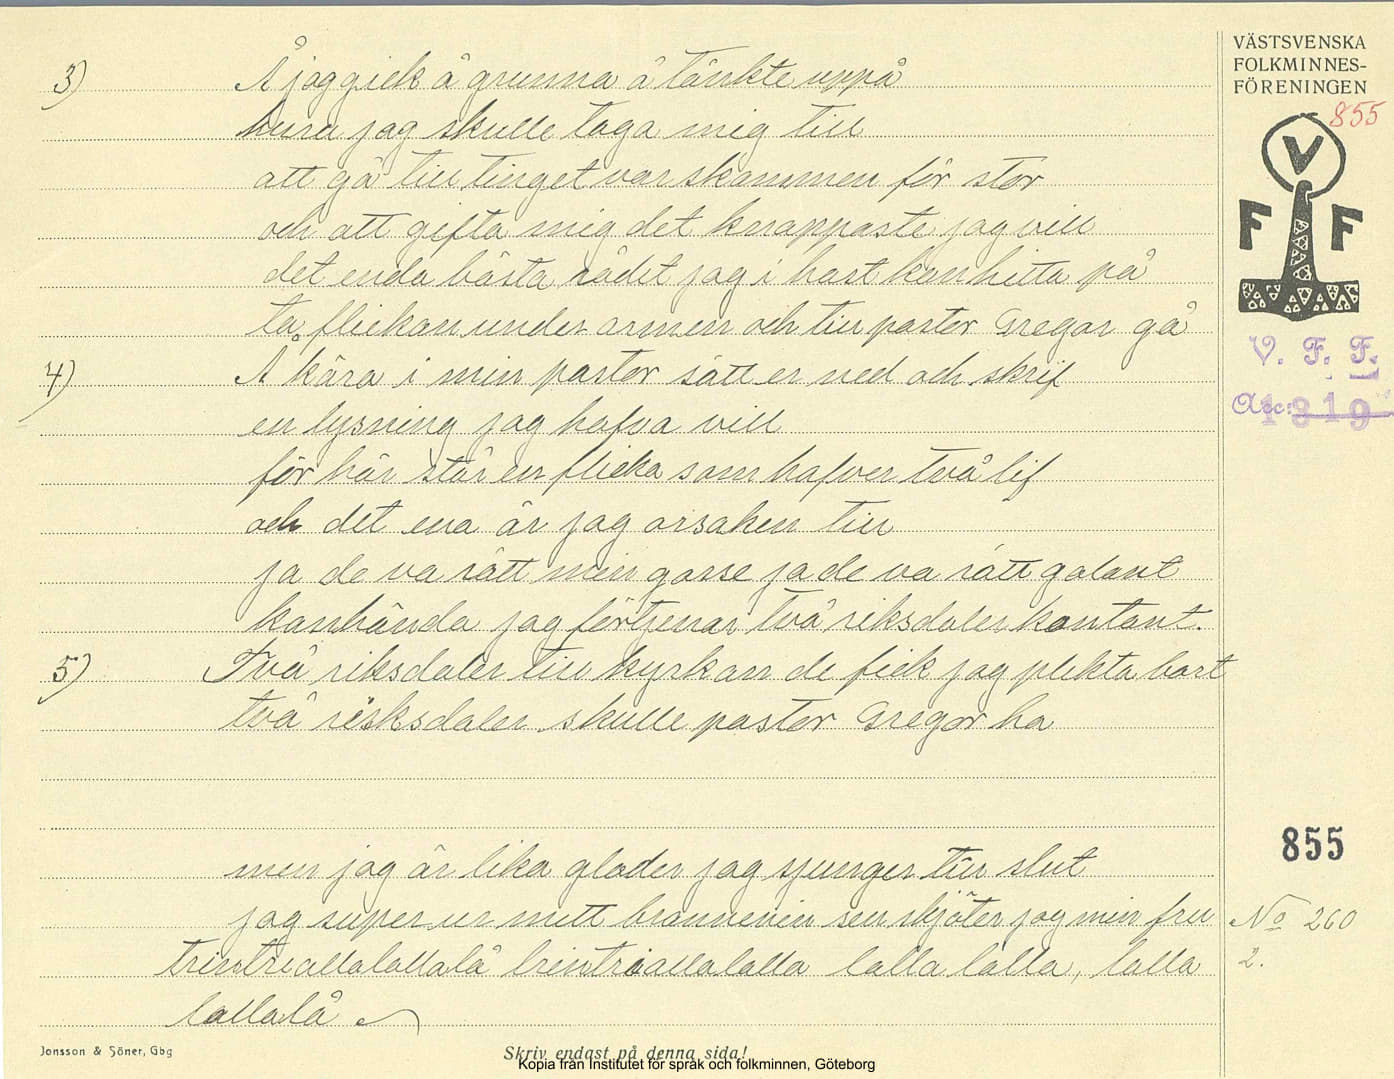 3) Å jag gick å grunna å tänkte uppå
huru jag skulle taga mig till
att gå till tinget var skammen för stor
och att gifta mig det knappaste jag vill
det enda bästa rådet jag i hast kan hitta på
ta flickan under armen och till pastor Gregor gå
4) Å kära i min pastor sätt er ned och skrif
en lysning jag hafva vill
för här står en flicka som hafver två lif
och det ena är jag orsaken till
ja de va rätt min gosse ja de va rätt galant
kanhända jag förtjenar två riksdaler kontant.
5) Två riksdaler till kyrkan de fick jag plikta bort
två risksdaler skulle pastor Gregor ha
men jag är lika glader jag sjunger till slut
jag super ur mitt brännevin sen skjöter jag min fru
trintriallalallalå trintriallalalla lalla lalla, lalla
lallalå
Jonsson & Söner, Gbg
Skriv endast på denna sida!
Kopia från Institutet för språk och folkminnen, Göteborg
VÄSTSVENSKA
FOLKMINNES-
FÖRENINGEN
855
V
F F
V. F. F.
Acc: 1319
855
No 260
2.